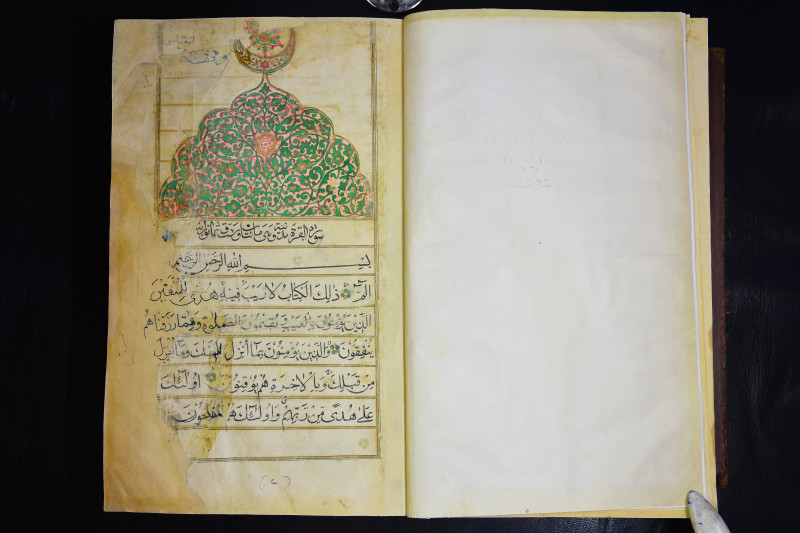 وقف
سورة البقرة مدنية وهي مائتان و ثمانون
بسم الله الرحمن الرحيم
الم ذلك الكتاب لا ريب فيه هدى للمتقين
الذين يؤمنون بالغيب ويقيمون الصلوة ومما رزقناهم
ينفقون والذين يؤمنون بما أنزل اليك وما أنزل
من قبلك وبالاخرة هم يوقنون اولئك
على هدى من ربهم واولئك هم المفلحون